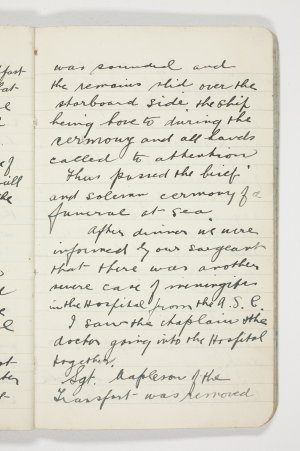 was sounded and
the remains slid over the
starboard side, the ship
being hove to during the
cermony and all hands
called to attention
Thus passed the brief
and solemn cermony of a
funeral at Sea.
After dinner we were
informed by our sargeant
that there was another
case of meningites
in the Hospital from the A.S.C.
I saw the chaplain & the
doctor going into the Hospital
together,
Sgt. Mapleson of the
Transport was removed